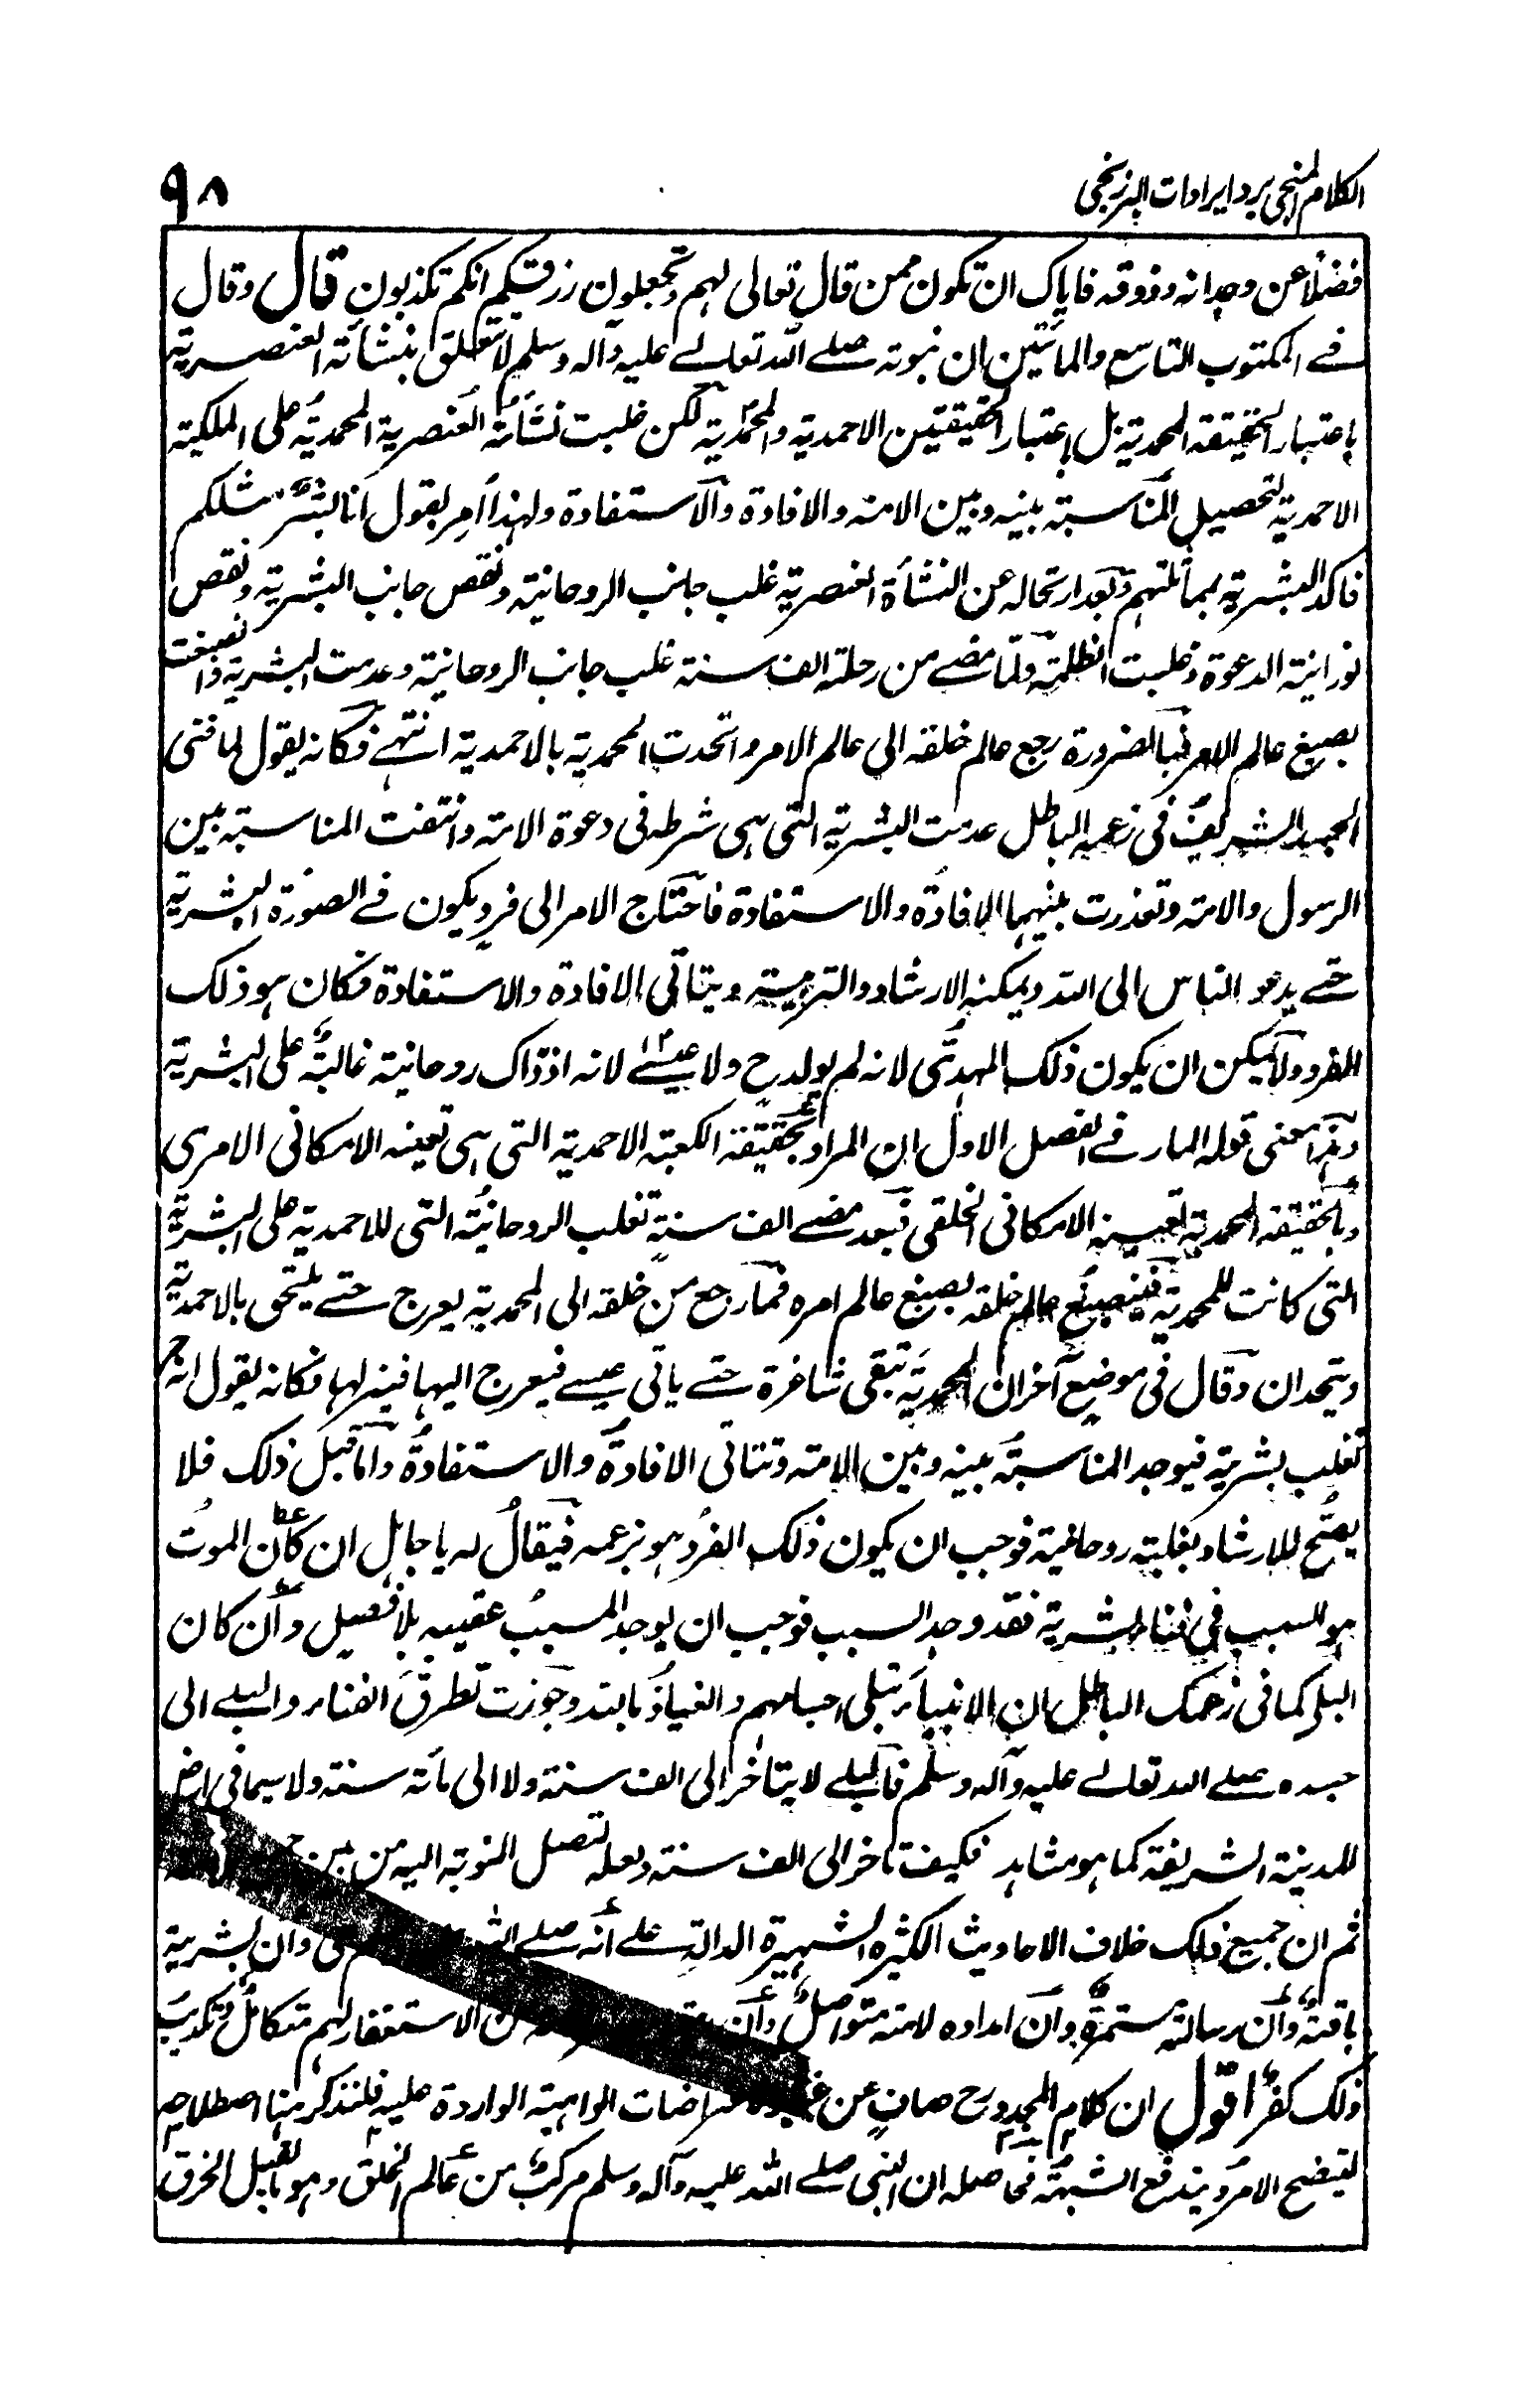 الكلام المنجي برد ايرادات البرزنجي
٩٨
فضلا عن وجدانه وذوقه فاياك ان تكون ممن قال تعالى لهم وتجعلون رزقكم انكم تكذبون قال وقال
في المكتوب التاسع والمأتين ان نبوته صلى الله تعالى عليه وآله وسلم لا تتعلق بنشأته العنصرية
باعتبار الحقيقة المحمدية بل باعتبار الحقيقتين الاحمدية والمحمدية لكن غلبت نشأته العنصرية المحمدية على الملكية
الاحمدية لتحصيل المناسبة بينه وبين الامة والافادة والاستفادة ولهذا امر بقول انا بشر مثلكم
فاكد البشرية بمماثلتهم وبعد ارتحاله عن النشأة العنصرية غلب جانب الروحانية ونقص جانب البشرية ونقص
نورانية الدعوة وغلبت الظلمة ولما مضى من رحلته الف سنة غلب جانب الروحانية وعدمت البشرية وانصبغت
بصبغ عالم الامر فبالضرورة رجع عالم خلقه الى عالم الامر واتحدت المحمدية بالاحمدية انتهى فكانه يقول لما فنى
الجسد الشريف في زعمه الباطل عدمت البشرية التي هي شرط في دعوة الامة وانتفت المناسبة بين
الرسول والامة وتعذرت بينهما الافادة والاستفادة فاحتاج الامر الى فرد يكون في الصورة البشرية
حتى يدعو الناس الى الله ويمكنه الارشاد والتربية ويتاتى الافادة والاستفادة فكان هو ذلك
الفرد ولا يمكن ان يكون ذلك المهدي لانه لم يولد ح ولا عيسى لانه اذ ذاك روحانيته غالبة على البشرية
وهذا معنى قوله المار في الفصل الاول ان المراد بحقيقة الكعبة الاحمدية التي هي تعينه الامكاني الامري
وبالحقيقة المحمدية تعينه الامكاني الخلقي فبعد مضى الف سنة تغلب الروحانية التي للاحمدية على البشرية
التي كانت للمحمدية فينصبغ عالم خلقه بصبغ عالم امره فما رجع من خلقه الى المحمدية يعرج حتى يلتحق بالاحمدية
ويتحدان وقال في موضع آخر ان المحمدية تبقى شاغرة حتى ياتي عيسى فيعرج اليها فينزلها فكانه يقول انه ح
تغلب بشريته فيوجد المناسبة بينه وبين الامة وتتاتى الافادة والاستفادة واما قبل ذلك فلا
يصح للارشاد بغلبة روحانيته فوجب ان يكون ذلك الفرد هو بزعمه فيقال له يا جاهل ان كان الموت
هو السبب في فناء البشرية فقد وجد السبب فوجب ان يوجد المسبب عقيبه بلا فصيل وان كان
البلى كما في زعمك الباطل ان الانبياء تبلى اجسامهم والعياذ بالله وجوزت تطرق الفناء والبلى الى
جسده صلى الله تعالى عليه وآله وسلم فالبلى لا يتاخر الى الف سنة ولا الى مأة سنة ولا سيما في ارض
المدينة الشريفة كما هو مشاهد فكيف تاخر الى الف سنة ولعله لتصل النوبة اليه من بين
ثم ان جميع ذلك خلاف الاحاديث الكثيرة الشهيرة الدالة على انه صلى الله وان بشريته
باقية وان رسالته مستمرة وان امداده لامته متواصل وان الاستغفار لهم متكامل وتكذيب
ذلك كفر اقول ان كلام المجدد رح صاف عن الواهية الواردة عليه فلنذكر هنا اصطلاحه
ليتضح الامر ويندفع الشبهة فحاصله ان النبي صلى الله عليه وآله وسلم مركب من عالم الخلق وهو ما يقبل الخرق